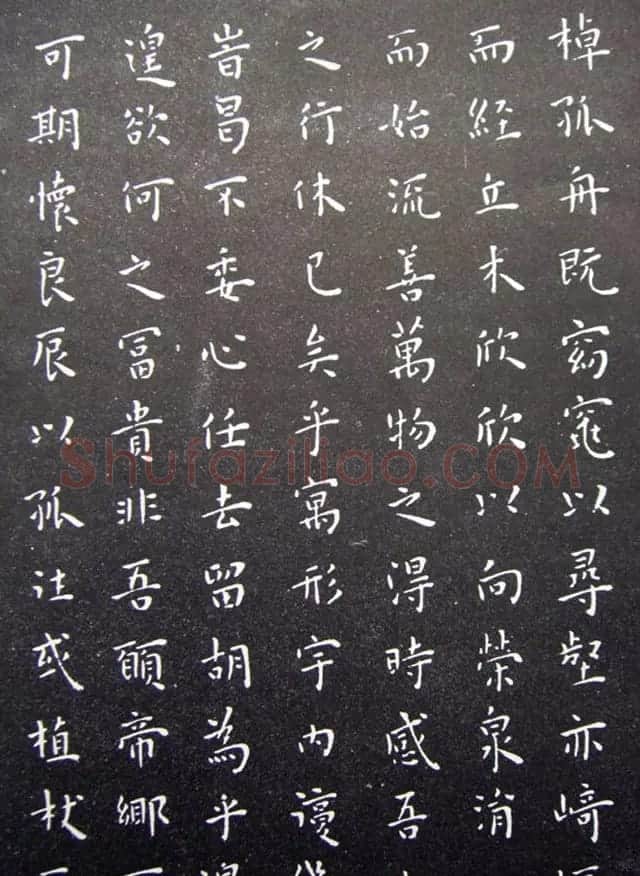 棹孤舟既窈窕以尋壑亦崎
而經丘木欣欣以向榮泉涓
而始流善萬物之得時感吾
之行休已矣乎寓形宇內復
旹曷不委心任去留胡為乎
遑欲何之冨貴非吾願帝鄉
可期懷良辰以孤往或植杖
Shufaziliao.COM